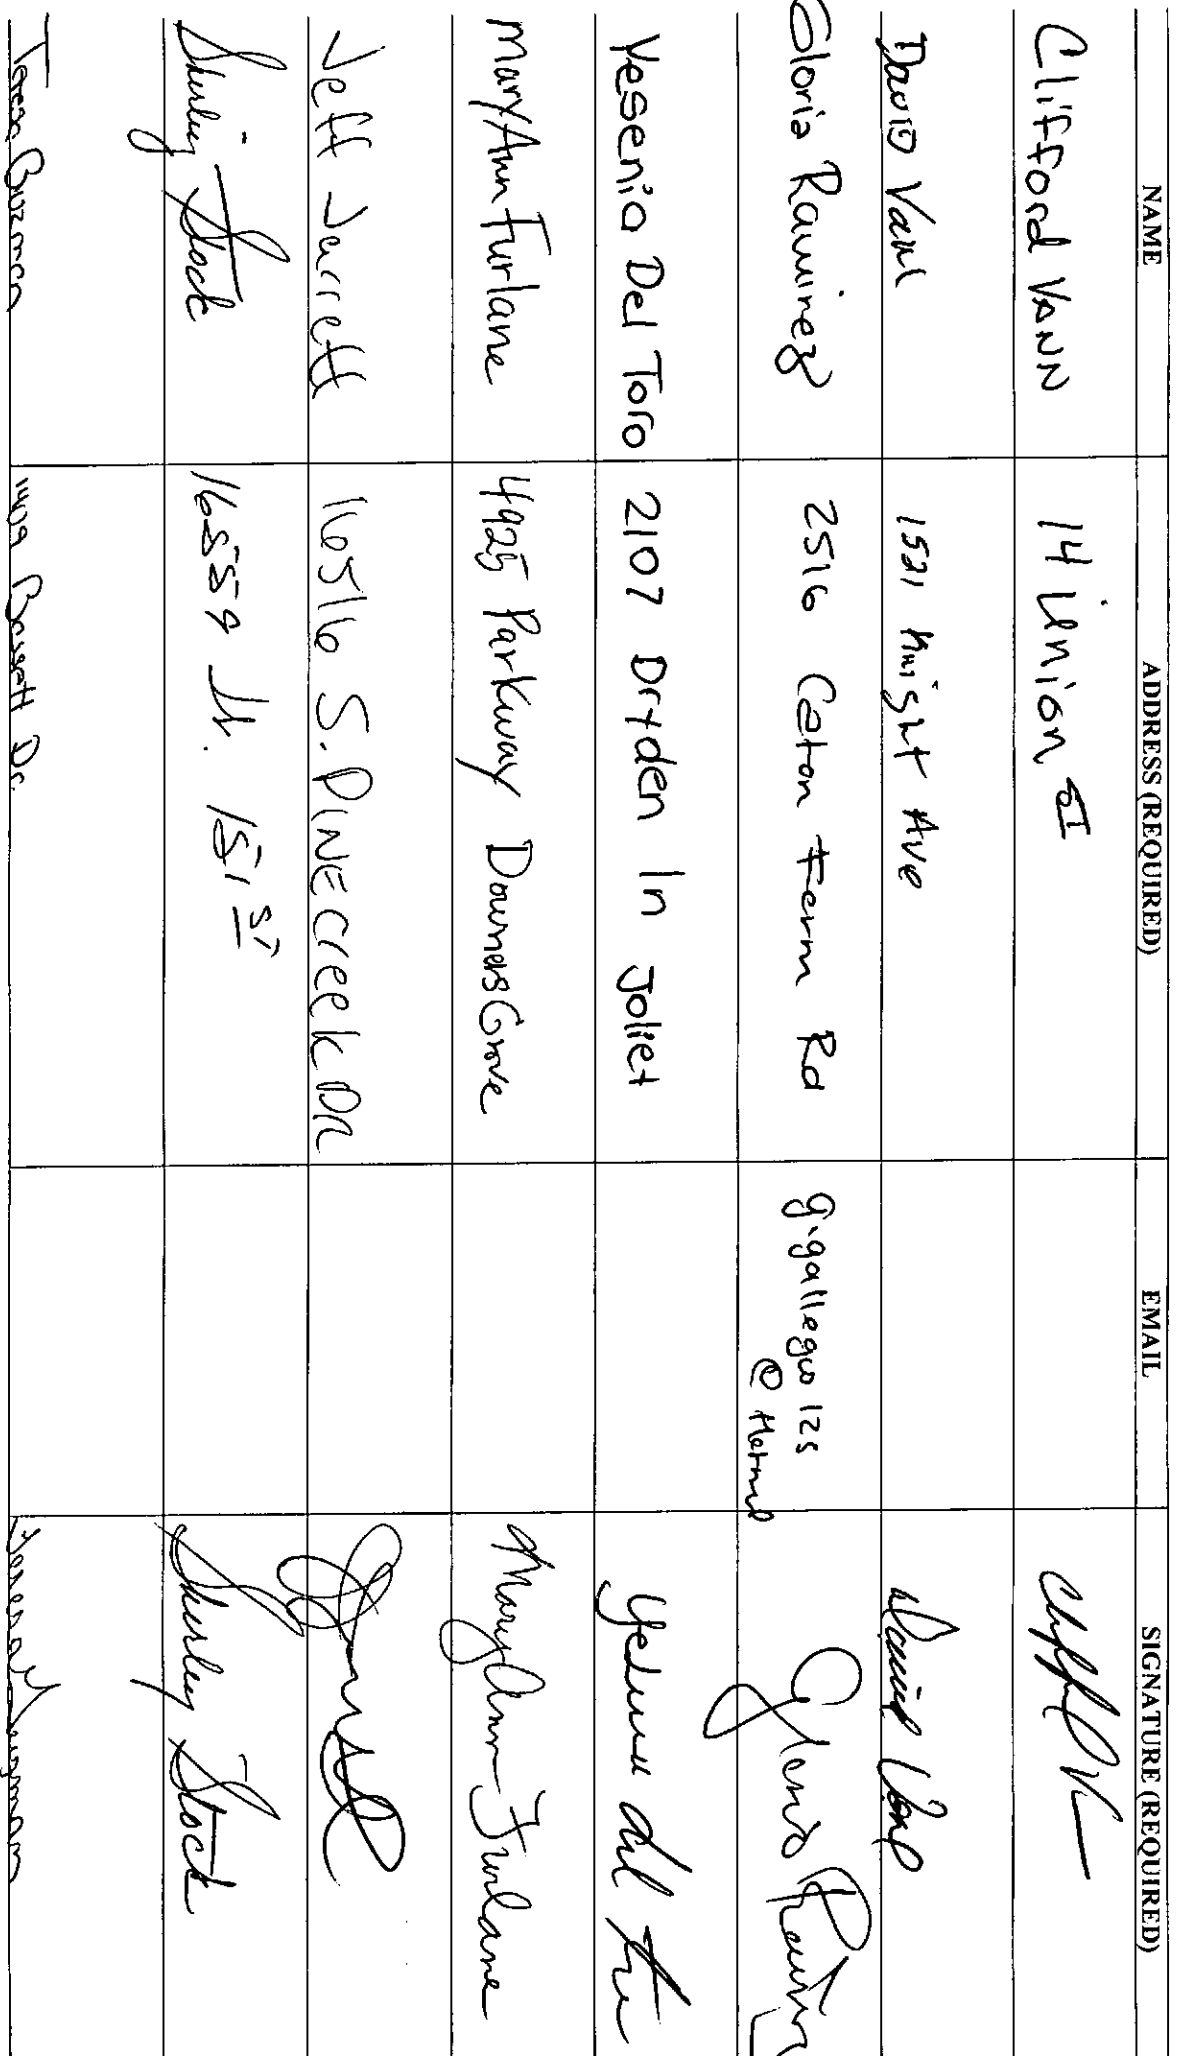 NAME ADDRESS (REQUIRED) EMAIL SIGNATURE (REQUIRED)
Clifford VANN 14 Union ST
DAVID Vann 1521 Knight Ave David
Gloria Ramirez 2516 Caton Farm Rd gigallegos125 Gloria Ramirez
@ Hotmail
Yesenia Del Toro 2107 Dryden ln Joliet Yesenia del Toro
Mary Ann Furlane 4925 Parkway Downers Grove Mary Ann Furlane
Jeff Jarrett 16516 S. PINE Creek DR
Shirley Stock 16559 W. 151 ST Shirley Stock
Teresa Guzman Dr. Teresa Guzman